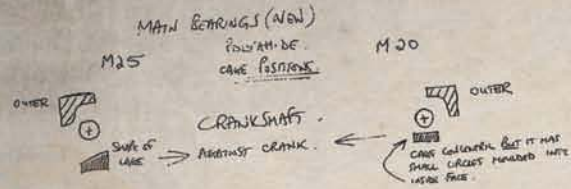 MAIN BEARINGS (NEW)
POLYAMIDE.
CAGE POSITIONS.
M25
M20
OUTER
OUTER
CRANKSHAFT.
SHAPE OF
CAGE
AGAINST CRANK.
CAGE CONCENTRIC BUT IT HAS
SMALL CIRCLES MOULDED INTO
INSIDE FACE.